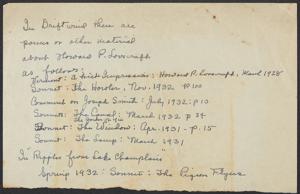 In Driftwind there are
poems or other material
about Howard P. Lovecraft
as follows:
Vermont: A First Impression: Howard P. Lovecraft, March 1928
Sonnet: The Howler, Nov. 1932 p 100
Comment on Joseph Smith: July, 1932: p 10
Sonnet: The Canal: March 1932 p 34
Sonnet: The Windows: Apr. 1931 - p. 15
Sonnet: The Lamp: March 1931
In Ripples from Lake Champlain
Spring 1932: Sonnet: The Pigeon Flyers